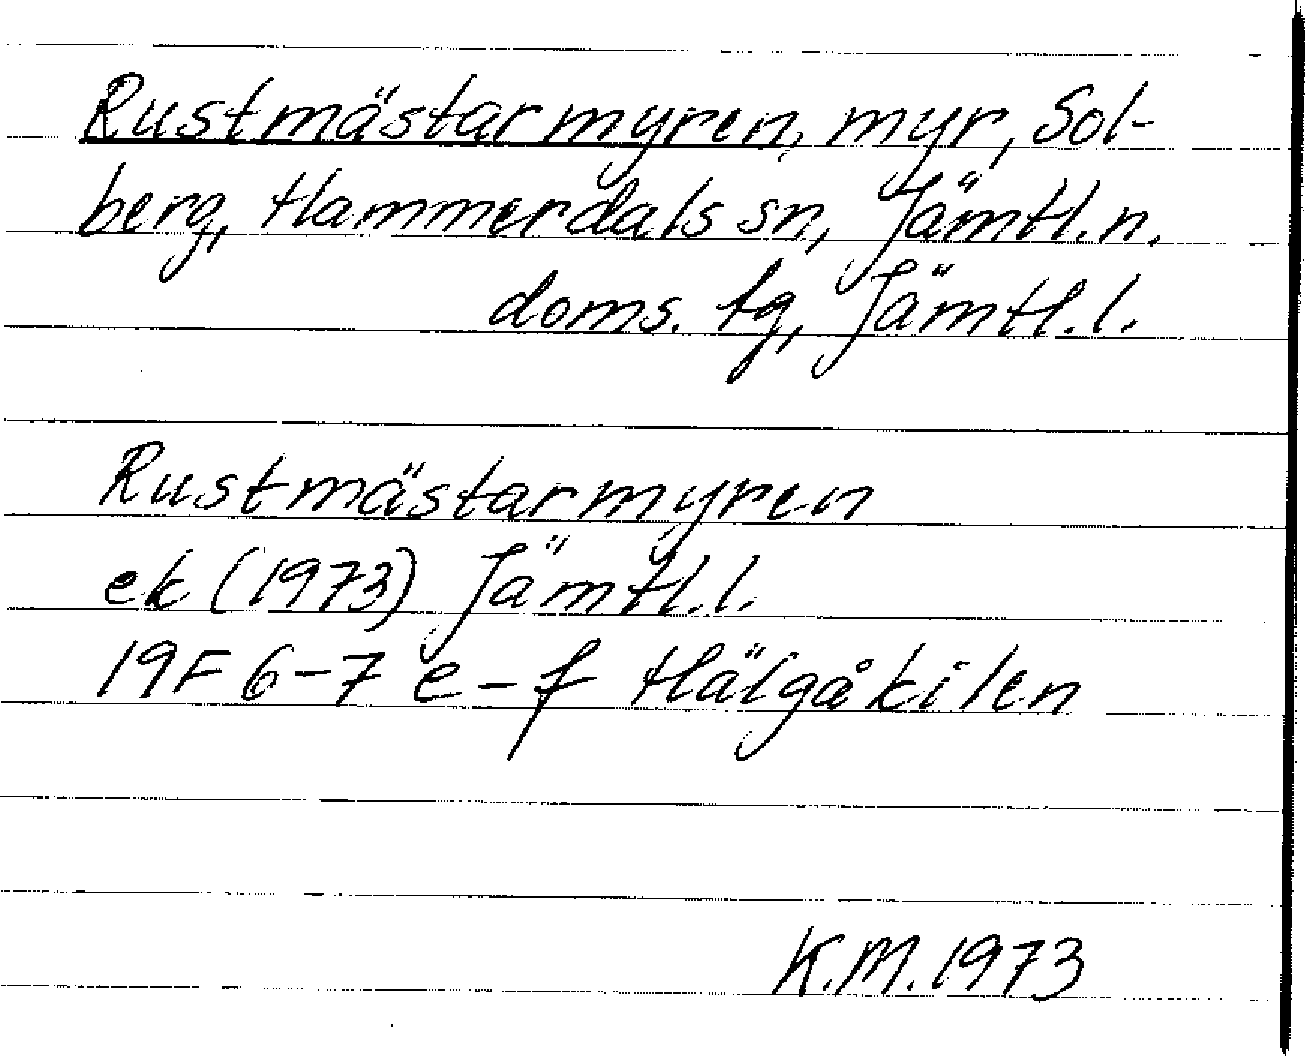 Rustmästarmyren, myr, Sol-
berg, Hammerdals sn, Jämtl.n.
doms. tg, Jämtl.l.
Rustmästarmyren
ek (1973) Jämtl.l.
19F 6-7 e-f Hälgåkilen
K.M.1973